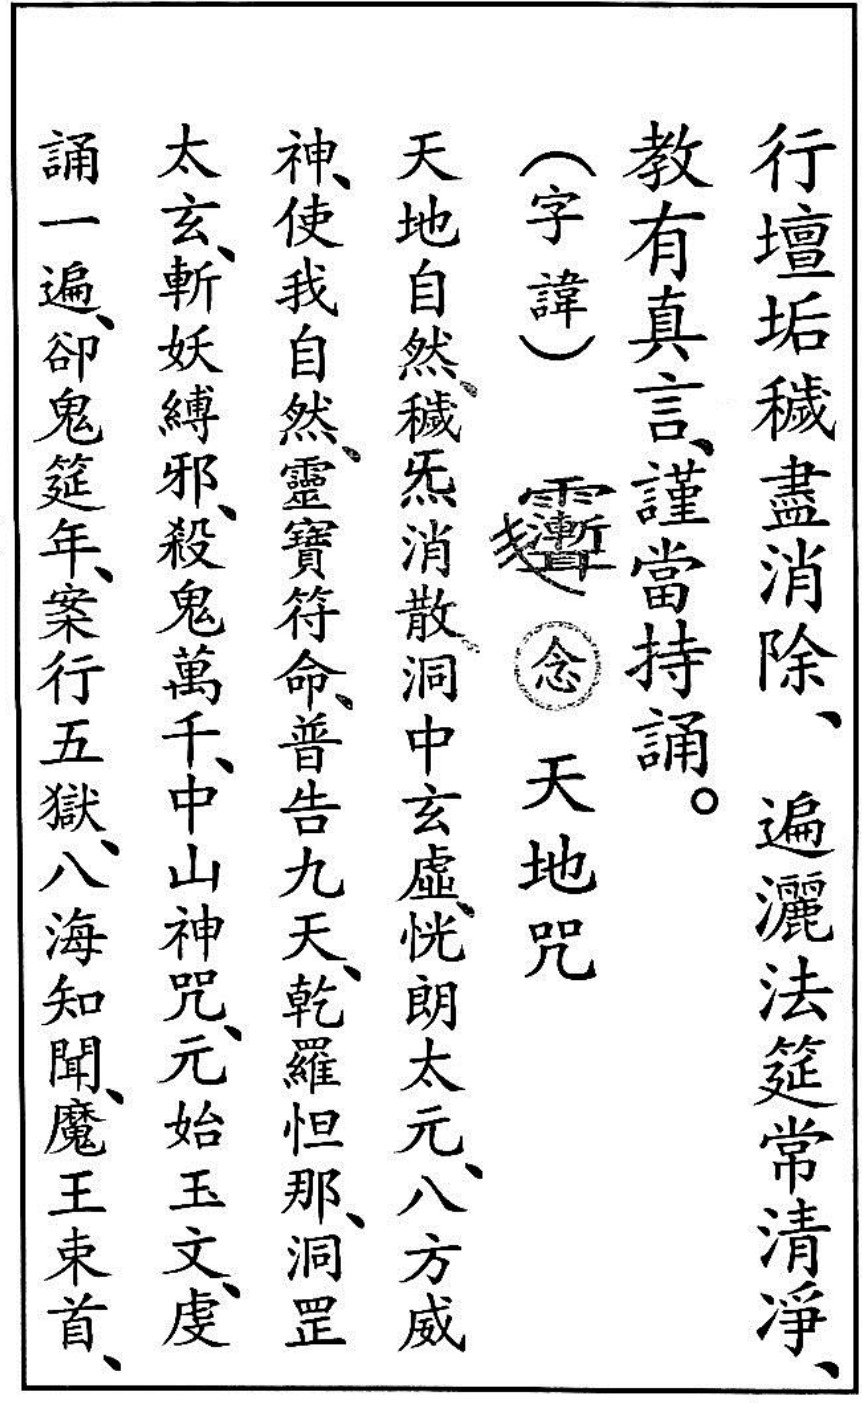 行壇垢穢盡消除、遍灑法筵常清淨、
教有真言、謹當持誦。
（字諱） 念 天地咒
天地自然、穢炁消散、洞中玄虛、恍朗太元、八方威
神、使我自然、靈寶符命、普告九天、乾羅怛那、洞罡
太玄、斬妖縛邪、殺鬼萬千、中山神咒、元始玉文、虔
誦一遍、卻鬼筵年、案行五獄、八海知聞、魔王束首、